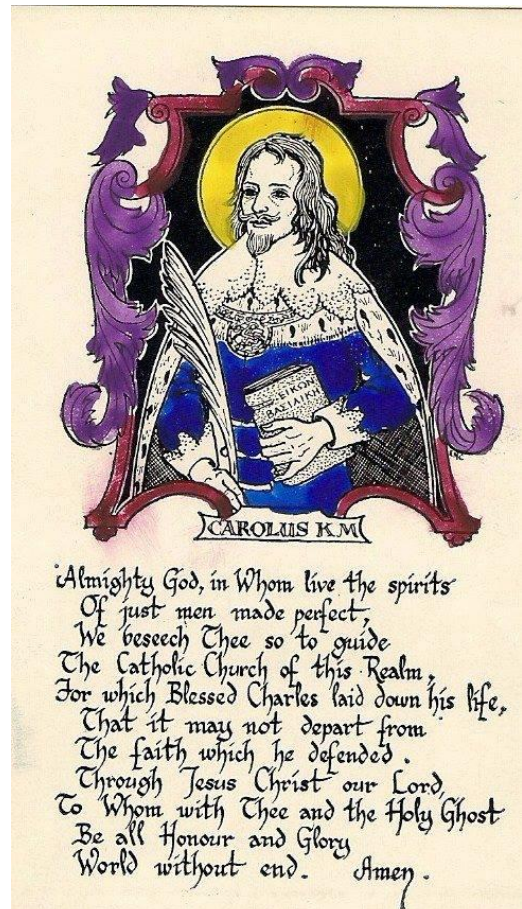 EIKON
BAΣIΛIKH
CAROLUS K M
Almighty God, in Whom live the spirits
Of just men made perfect,
We beseech Thee so to guide
The Catholic Church of this Realm,
For which Blessed Charles laid down his life,
That it may not depart from
The faith which he defended.
Through Jesus Christ our Lord,
To Whom with Thee and the Holy Ghost
Be all Honour and Glory
World without end. Amen.